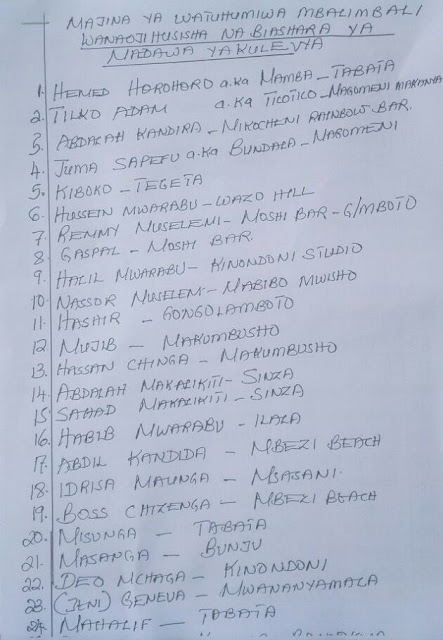 MAJINA YA WATUHUMIWA MBALIMBALI
WANAOJIHUSISHA NA BIASHARA YA
MADAWA YAKULEVYA
1. HEMED HOROHORO a.ka MAMBA - TABATA
2. TILKO ADAM a.ka TICOTICO - MAGOMENI MAKANYA
3. ABDALAH KANDIRA - MIKOCHENI RAINBOW BAR.
4. JUMA SAPEFU a.ka BUNDALA - MAGOMENI
5. KIBOKO - TEGETA
6. HUSSEIN MWARABU - WAZO HILL
7. REMMY MUSELEMI - MOSHI BAR - G/MBOTO
8. GASPAL - MOSHI BAR.
9. HALIL MWARABU - KINONDONI STUDIO
10. NASSOR MUSELEM - MABIBO MWISHO
11. HASHIR - GONGOLAMBOTO
12. MUJIB - MAKUMBUSHO
13. HASSAN CHINGA - MAKUMBUSHO
14. ABDALAH MAKALIKITI - SINZA
15. SAHAD MAKALIKITI - SINZA
16. HABIB MWARABU - ILALA
17. ABDIL KANDIDA - MBEZI BEACH
18. IDRISA MAUNGA - MSASANI.
19. BOSS CHIZENGA - MBEZI BEACH
20. MISUNGA - TABATA
21. MASANGA - BUNJU
22. DEO MCHAGA - KINONDONI
23. (JENI) GENEVA - MWANANYAMALA
24. MAHALIF - TABATA